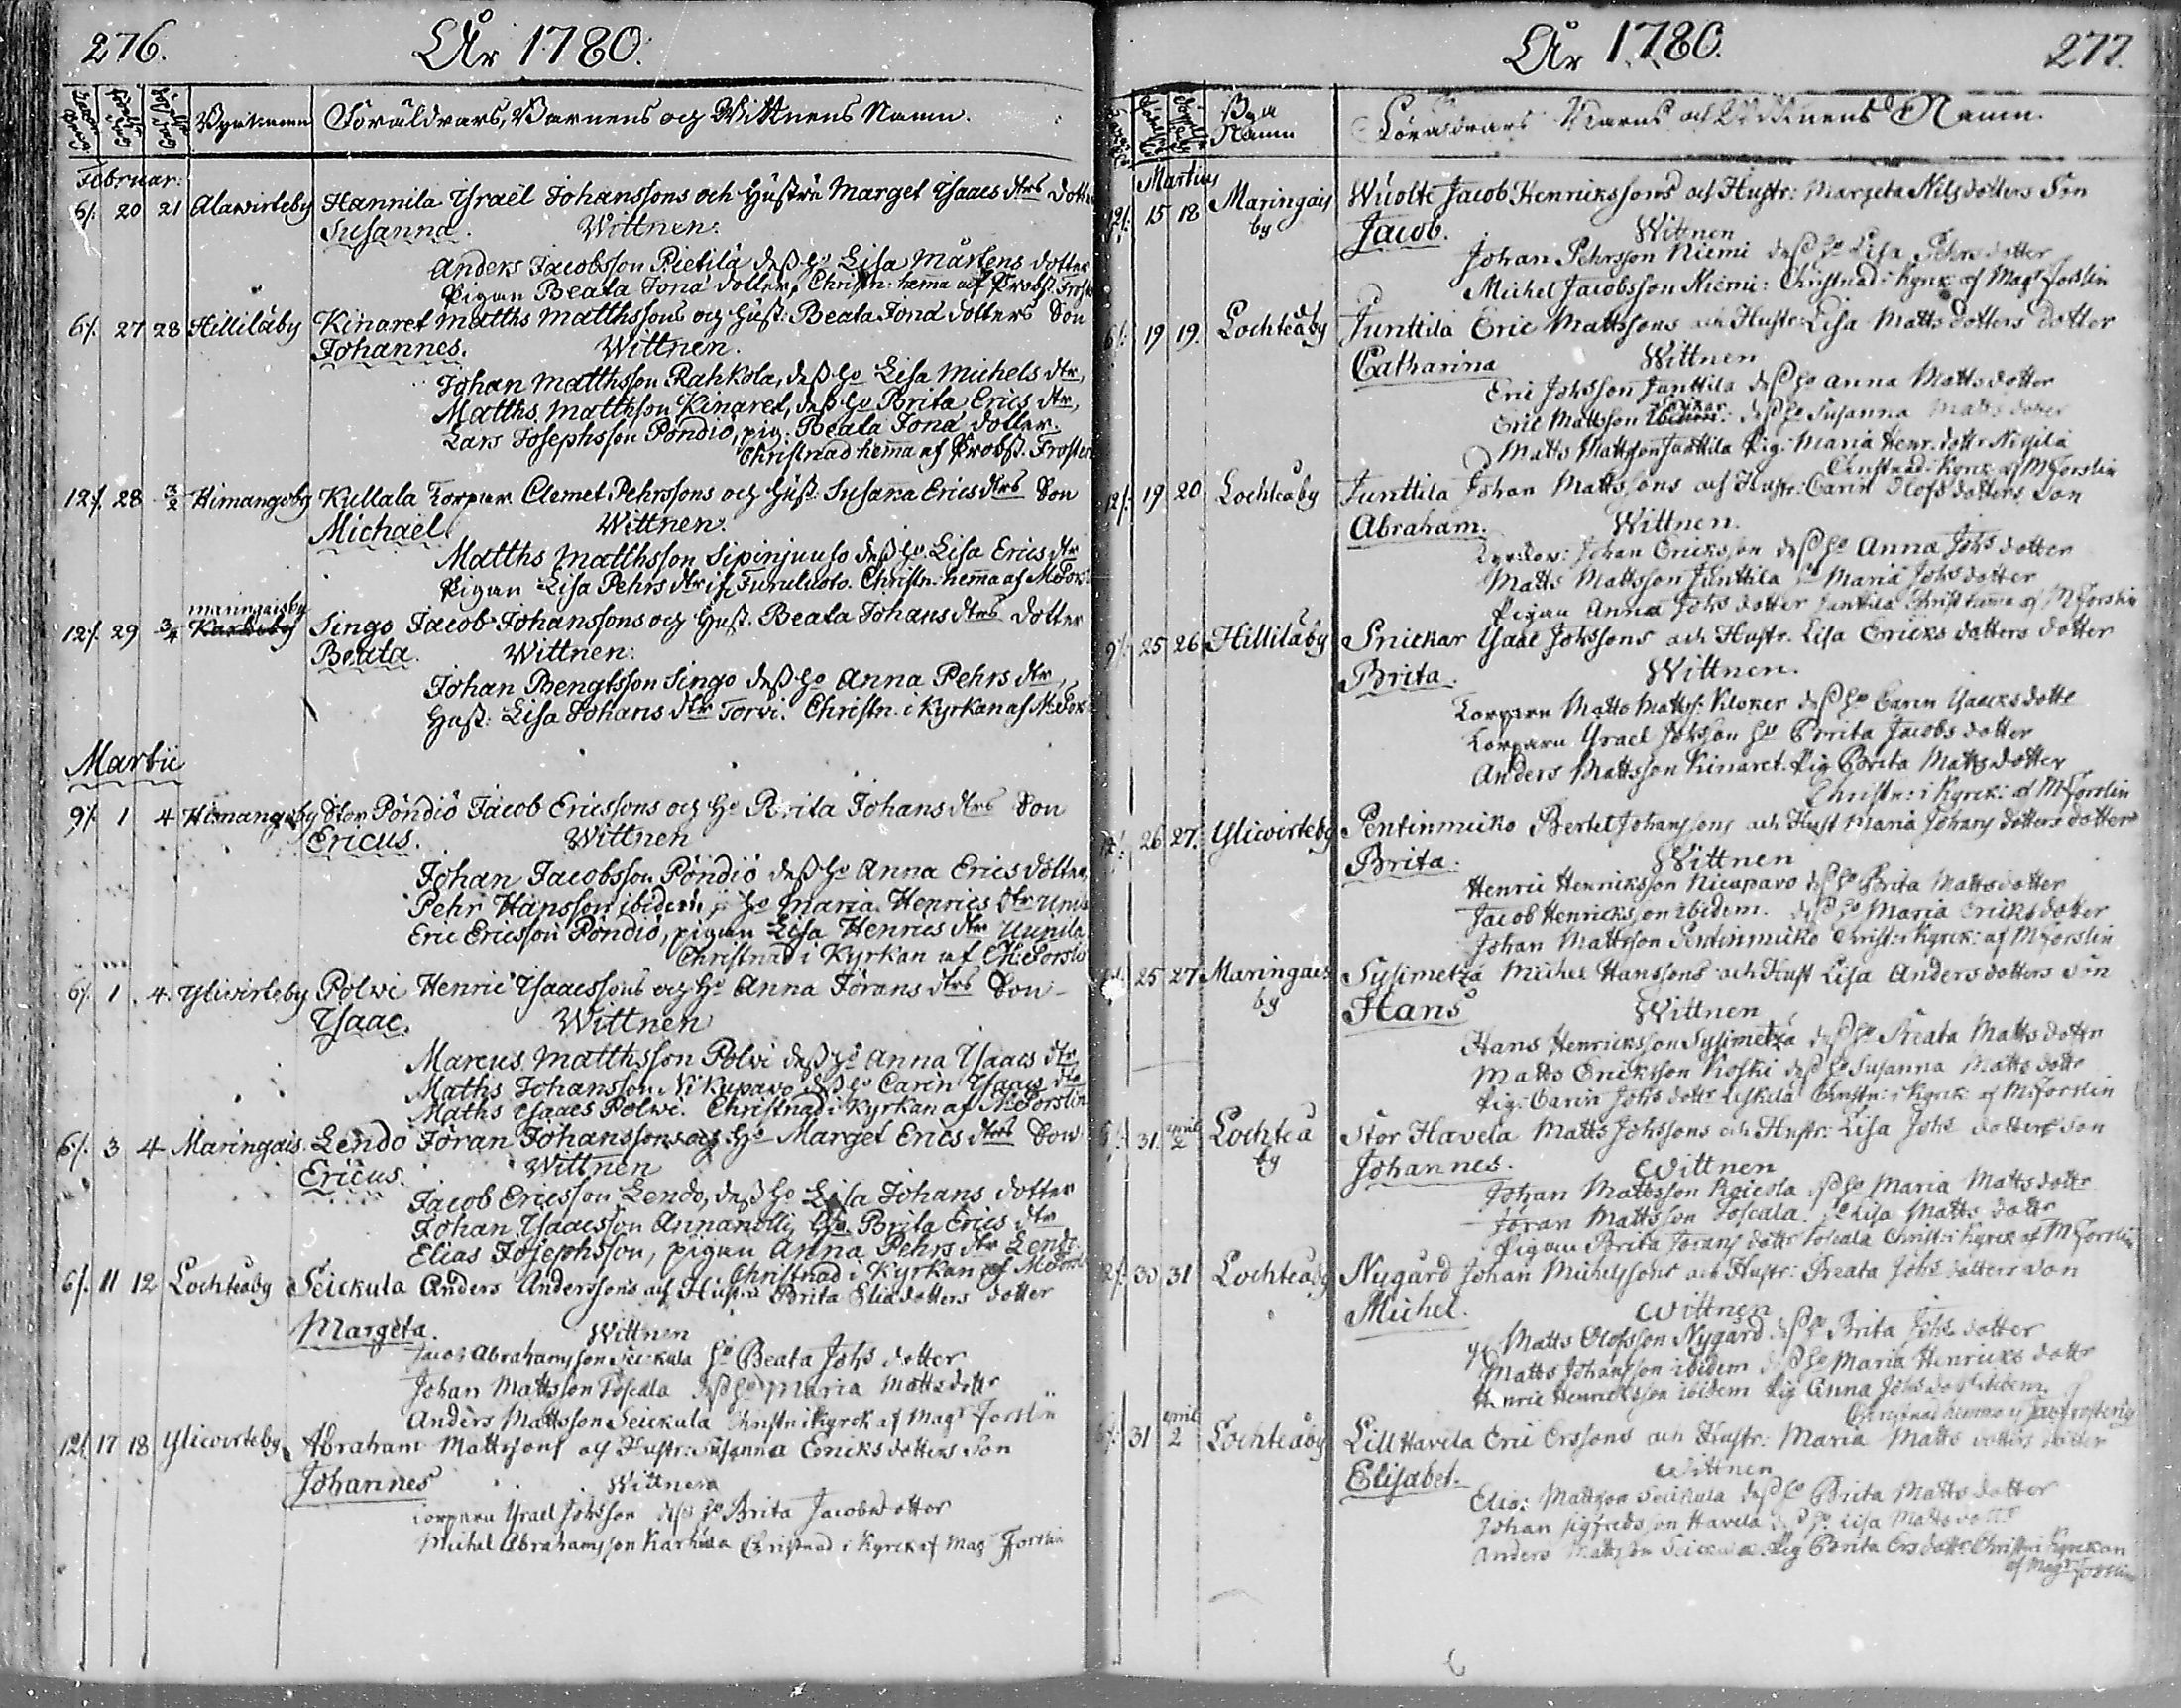 276. År 1780.
Bynamn Föräldrars, Barnens och Wittnens Namn.
Februar:
6/. 20 21 Alawirteby Hannila Ysraël Johanssons och Hustru Marget Ysaacs dtrs dotter
Susanna. Wittnen:
Anders Jacobsson Pietilä dess ho Lisa Mårtens dotter
Pigan Beata Jona dotter, Christn: hema af Probst. Frost
6/. 27 28 Hillilåby Kinaret Matths Matthssons och Hust: Beata Jona dotters Son
Johannes. Wittnen.
Johan Matthsson Rahkola, dess ho Lisa Michels dtr,
Matths Matthsson Kinaret, dess ho Brita Erics dtr,
Lars Josephsson Pöndiö, pig: Beata Jona dotter.
Christnad hema af Probst. Frosteri
12/. 28 3/2 Himangoby Kullala Torpar. Clemet Pehrssons och Hust: Susana Erics dtrs Son
Michaël Wittnen.
Matths Matthsson Sipinjuuso dess ho Lisa Erics dtr
Pigan Lisa Pehrs dtr if. Furuluoto. Christn: hema af M. Fors
maringaisby
12/. 29 3/4 Karhiby Singo Jacob Johanssons och Hust. Beata Johans dtrs dotter
Beata. Wittnen:
Johan Bengtsson Singo dess ho Anna Pehrs dtr,
Hust: Lisa Johans dtr Torvi. Christn: i Kyrkan af M: Fors
Martii
9/. 1 4 Himangoby Stor Pöndiö Jacob Ericssons och ho Brita Johans dtrs Son
Ericus. Wittnen
Johan Jacobsson Pöndiö dess ho Anna Erics dotter,
Pehr Hansson ibidem ho Maria Henrics dtr Uni
Eric Ericsson Pöndiö, pigan Lisa Henrics dtr Uunila
Christnad i Kyrkan af M: Forsli
6/. 1 4. Yliwirteby Polvi Henric Ysaacssons och ho Anna Jörans dtrs Son
Ysaac. Wittnen
Marcus Matthsson Polvi dess ho Anna Ysaacs dtr
Maths Johansson Nikupavo dess ho Carin Ysaacs dtr
Maths Ysaacs Polwi. Christnad i Kyrkan af M: Forslin
6/. 3 4 Maringais. Lendo Jöran Johanssons och ho Marget Erics dtrs Son
Ericus. Wittnen
Jacob Ericsson Lendo, dess ho Lisa Johans dotter
Johan Ysaacsson Annanolli, ho Brita Erics dtr
Elias Josephsson, pigan Anna Pehrs dtr Lendo
Christnad i Kyrkan af M: Forsl
6/. 11 12 Lochteåby Seickula Anders Anderssons och Hustru Brita Eliædotters dotter
Margeta. Wittnen
Jacob Abrahamsson Seickula ho Beata Johs dotter
Johan Mattsson Toscala dess ho Maria Mattsdottr
Anders Mattsson Seickula Christn i Kyrck af Magr Forslin
12/. 17 18 Yliwirteby Abraham Mattssons och Hustr: Susanna Ericksdotters Son
Johannes Wittnen
Torparn Ysrael Johsson dess ho Brita Jacobsdotter
Michel Abrahamsson Karhula Christnad i Kyrck af Mag Forslin
År 1780. 277.
Bya Namn Föräldrars Barns och Wittnens Namn.
Martius
12/. 15 18 Maringais by Wuolte Jacob Henrikssons och Hustr: Margeta Nilsdotters Son
Jacob. Wittnen
Johan Pehrsson Niemi dess ho Lisa Pehrsdotter
Michel Jacobsson Niemi: Christnad i Kyrck af Magr Forslin
6/. 19 19. Lochteåby Junttila Eric Mattssons och Hustr: Lisa Mattsdotters dotter
Catharina Wittnen
Eric Johsson Junttila dess ho Anna Mattsdotter
Eric Mattsson ibidem: dess ho Susanna Matts doter
Matts Mattsson Junttila Pig: Maria Henr. dottr Niskila
Christnad i Kyrck af M Forslin
12/. 19 20 Lochteåby Junttila Johan Mattssons och Hustr: Carin Olofsdotters Son
Abraham. Wittnen.
Johan Ericksson dess ho Anna Johs dotter
Matts Mattsson Junttila Maria Johsdotter
Pigan Anna Johs dotter Junttila Christ hema af M Forslin
9/. 25 26 Hillilåby Snickar Ysaac Johssons och Hustr. Lisa Ericks dotters dotter
Brita. Wittnen.
Torparn Matts Matts: Kloker dess ho Carin Ysaacksdotte
Torparn Ysrael Johsson ho Brita Jacobs dotter
Anders Mattsson Kinaret. Pig Brita Mattsdotter
Christn: i Kyrck: af M Forslin
26 27. Yliwirteby Pentinmicko Bertel Johanssons och Hust Maria Johans dotters dotter
Brita. Wittnen
Henric Henriksson Nicupavo dess ho Brita Mattsdotter
Jacob Henricksson ibidem. dess ho Maria Ericksdotter
Johan Mattsson Pentinmicko Christ: i Kyrck: af M Forslin
25 27 Maringais by Sysimetzä Michel Hanssons och Hust Lisa Andersdotters Son
Hans Wittnen
Hans Henricksson Sysimetzä dess ho Beata Mattsdotter
Matts Ericksson Koski dess ho Susanna Matts dotte
Pig: Carin Johs dottr Leskelä Christn: i Kyrck af M Forslin
31. april 2 Lochteå by Stor Havela Matts Johssons och Hustr: Lisa Johs dotters Son
Johannes. Wittnen
Johan Mattsson dess ho Maria Mattsdottr
Jöran Mattsson Toscala. Lisa Matts dottr
Pigan Brita Jörans dottr Toscala Christ: i Kyrck af M Forslin
12/. 30 31 Lochteåby Nygård Johan Michelssons och Hustr: Beata Johs dotters Son
Michel. Wittnen
Matts Olofsson Nygård dess ho Brita Johs dotter
Matts Johansson ibidem dess ho Maria Henricks dottr
Henric Henricksson ibidem Pig Anna Johsdottr ibidem
Christnad hemma af
31 april 2 Lochteåby Lill Havela Eric Erssons och Hustr: Maria Matts dotters dotter
Elisabet. Wittnen
Elias Mattsson Seickula dess ho Brita Mattsdotter
Johan Sigfredsson Havela dess ho Lisa Mattsdottr
Anders Mattsson Seickula. Pig Brita Ersdottr Christn i Kyrckan
af Magr Forslin